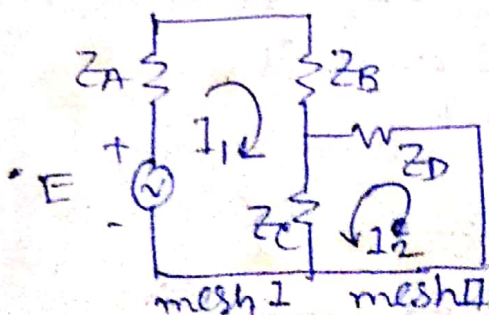 ZA
ZB
+
I1
ZD
E
-
ZC
I2
mesh I
mesh II